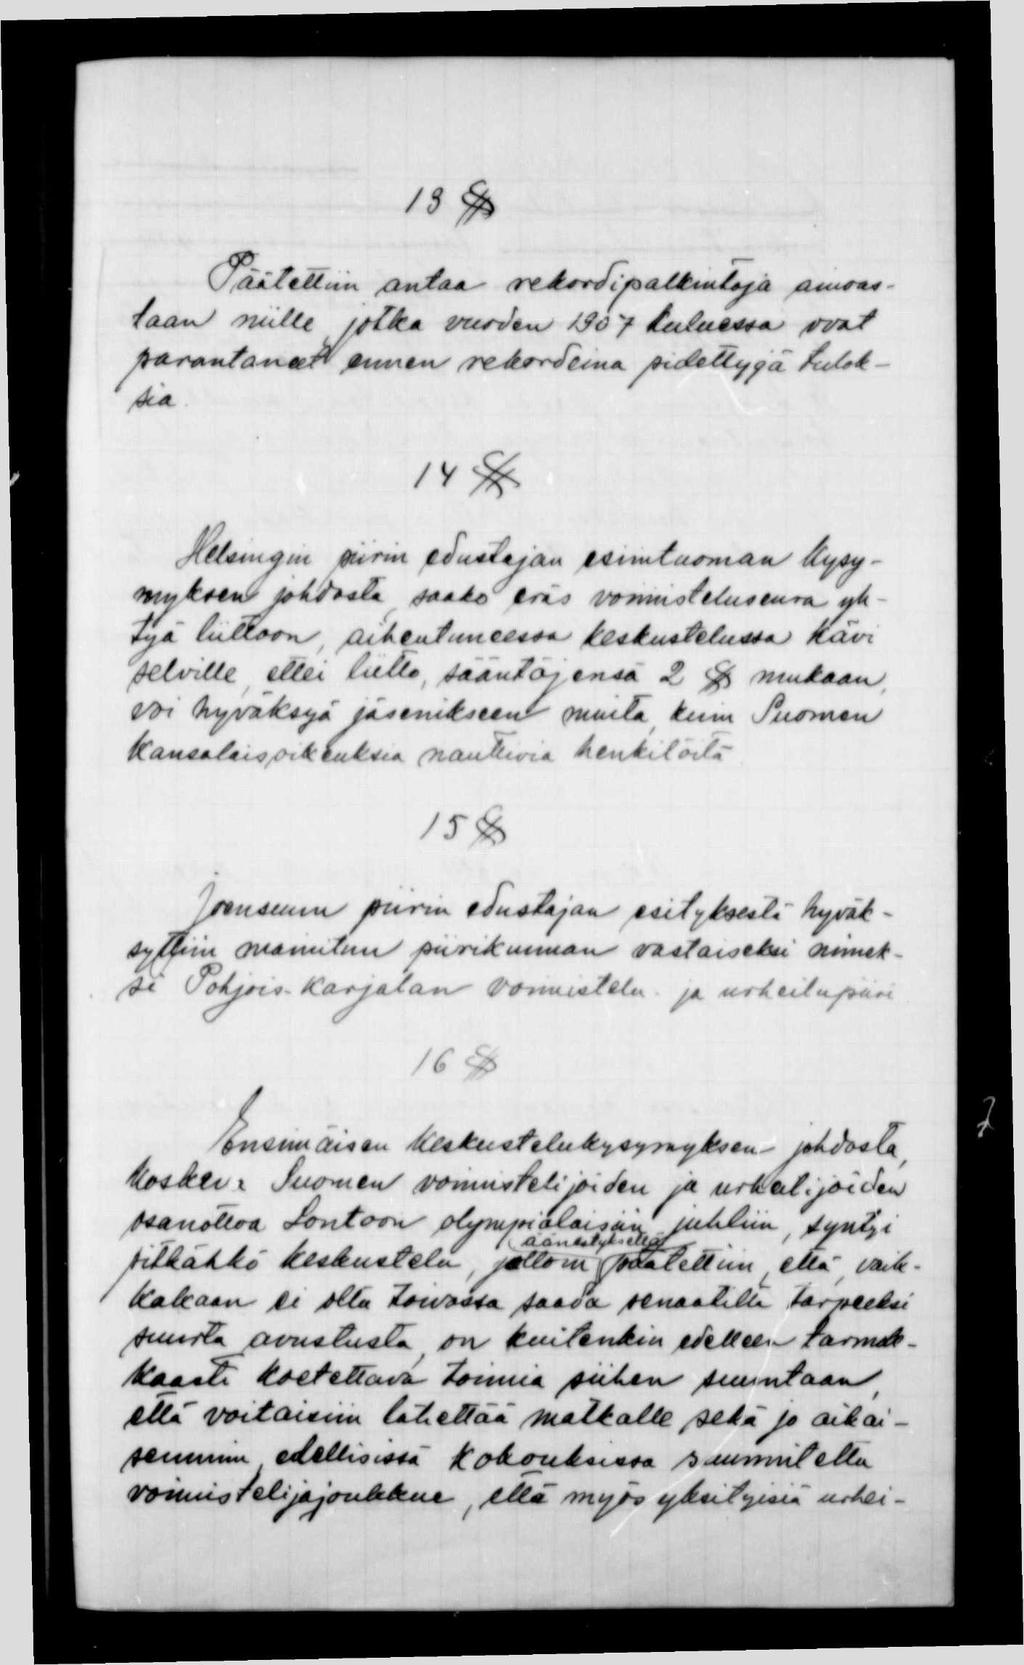 13 §
Päätettiin antaa rekordipalkintoja ainoas-
taan niille, jotka vuoden 1907 kuluessa ovat
parantaneet ennen rekordeina pidettyjä tulok-
sia.
14 §
Helsingin piirin edustajan esiintuoman kysy-
myksen johdosta, saako eräs voimisteluseura yh-
tyä liittoon, aiheutuneessa keskustelussa kävi
selville, ettei liitto, sääntöjensä 2 § mukaan,
voi hyväksyä jäsenikseen muita, kuin Suomen
kansalaisoikeuksia nauttivia henkilöitä
15 §
Joensuun piirin edustajan esityksestä hyväk-
syttiin mainitun piirikunnan vastaiseksi nimek-
si Pohjois-Karjalan voimistelu- ja urheilupiiri
16 §
Ensimäisen keskustelukysymyksen johdosta,
koskeva Suomen voimistelijoiden ja urheilijoiden
osanottoa Lontoon olympialaisiin juhliin, syntyi
äänestyksellä
pitkähkö keskustelu, jolloin päätettiin, että, vaik-
kakaan ei olla toivossa saada senaatilta tarpeeksi
suurta avustusta, on kuitenkin edelleen tarmok-
kaasti koetettava toimia siihen suuntaan,
että voitaisiin lähettää matkalle sekä jo aikai-
semmin, edellisissä kokouksissa suunniteltu
voimistelijajoukkue, että myös yksityisiä urhei-
7